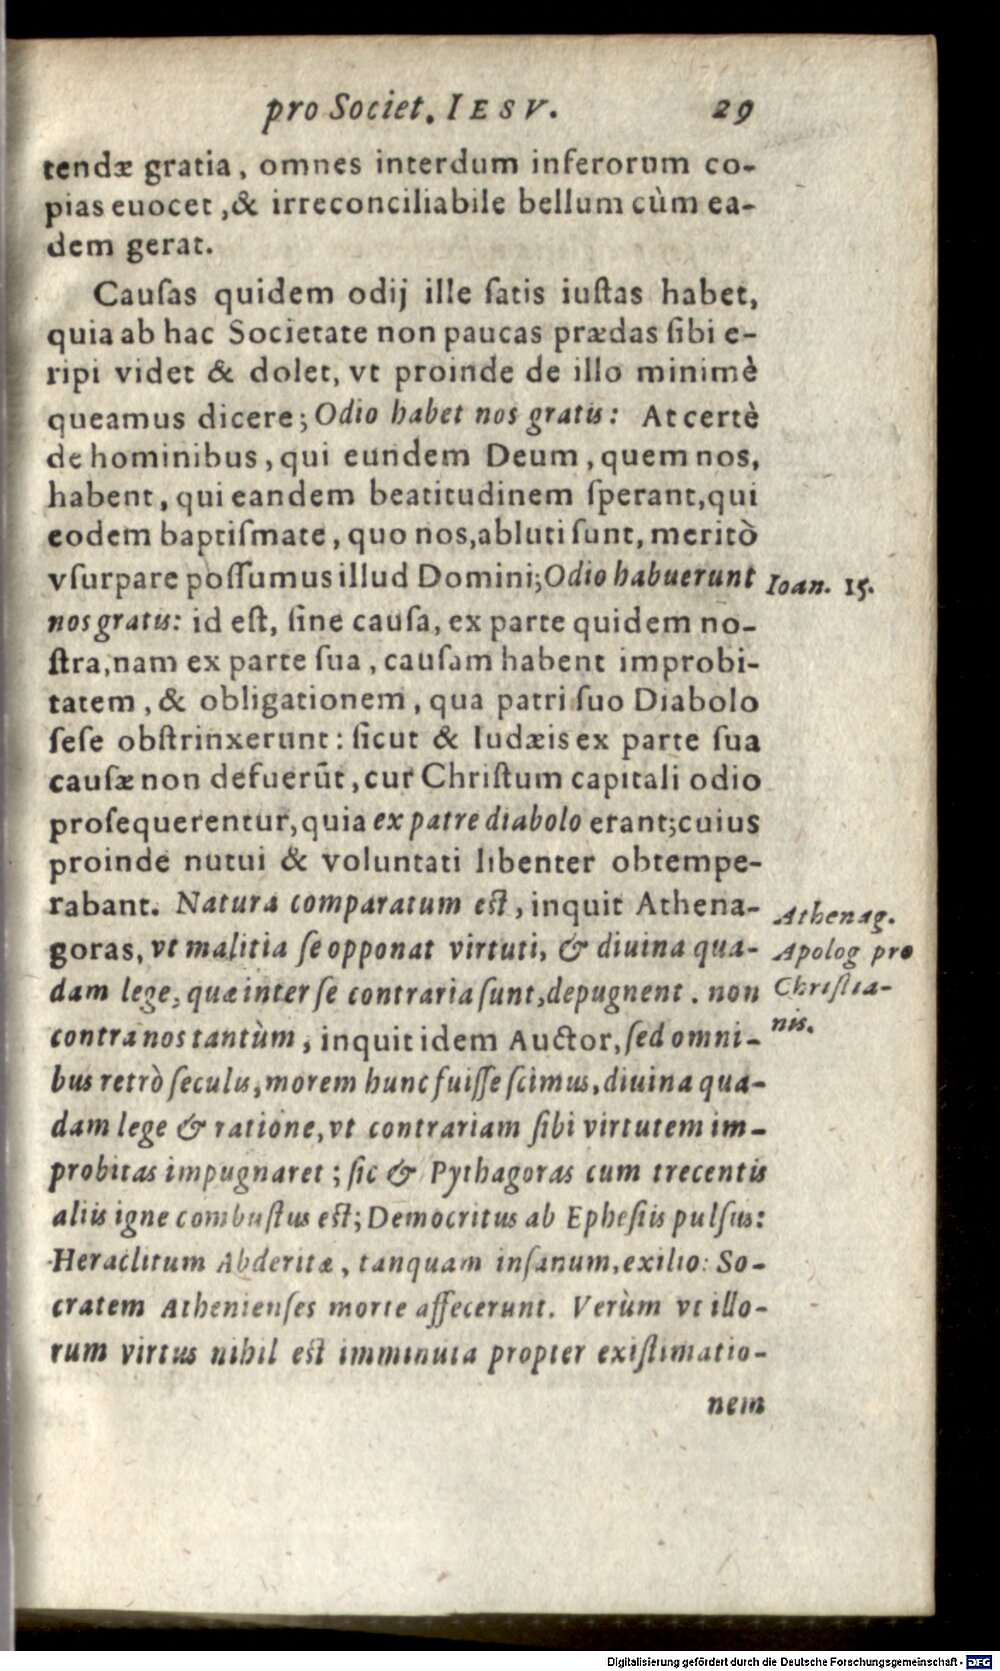 pro Societ. IESV. 29
tendæ gratia, omnes interdum inferorum co-
pias euocet, & irreconciliabile bellum cùm ea-
dem gerat.
Cauſas quidem odij ille ſatis iuſtas habet,
quia ab hac Societate non paucas prædas ſibi e-
ripi videt & dolet, vt proinde de illo minimè
queamus dicere; Odio habet nos gratis: At certè
de hominibus, qui eundem Deum, quem nos,
habent, qui eandem beatitudinem ſperant, qui
eodem baptiſmate, quo nos, abluti ſunt, meritò
vſurpare poſſumus illud Domini; Odio habuerunt
Ioan. 15.
nos gratis: id eſt, ſine cauſa, ex parte quidem no-
ſtra, nam ex parte ſua, cauſam habent improbi-
tatem, & obligationem, qua patri ſuo Diabolo
ſeſe obſtrinxerunt: ſicut & Iudæis ex parte ſua
cauſæ non defuerūt, cur Chriſtum capitali odio
proſequerentur, quia ex patre diabolo erant; cuius
proinde nutui & voluntati libenter obtempe-
rabant. Natura comparatum eſt, inquit Athena-
goras, vt malitia ſe opponat virtuti, & diuina qua-
dam lege, quæ inter ſe contraria ſunt, depugnent. non
contra nos tantùm, inquit idem Auctor, ſed omni-
Athenag.
Apolog pro
Chriſtia-
nis.
bus retrò ſeculis, morem hunc fuiſſe ſcimus, diuina qua-
dam lege & ratione, vt contrariam ſibi virtutem im-
probitas impugnaret; ſic & Pythagoras cum trecentis
aliis igne combuſtus eſt; Democritus ab Epheſiis pulſus:
Heraclitum Abderitæ, tanquam inſanum, exilio: So-
cratem Athenienſes morte affecerunt. Verùm vt illo-
rum virtus nihil eſt imminuta propter exiſtimatio-
nem
Digitalisierung gefördert durch die Deutsche Forschungsgemeinschaft - DFG